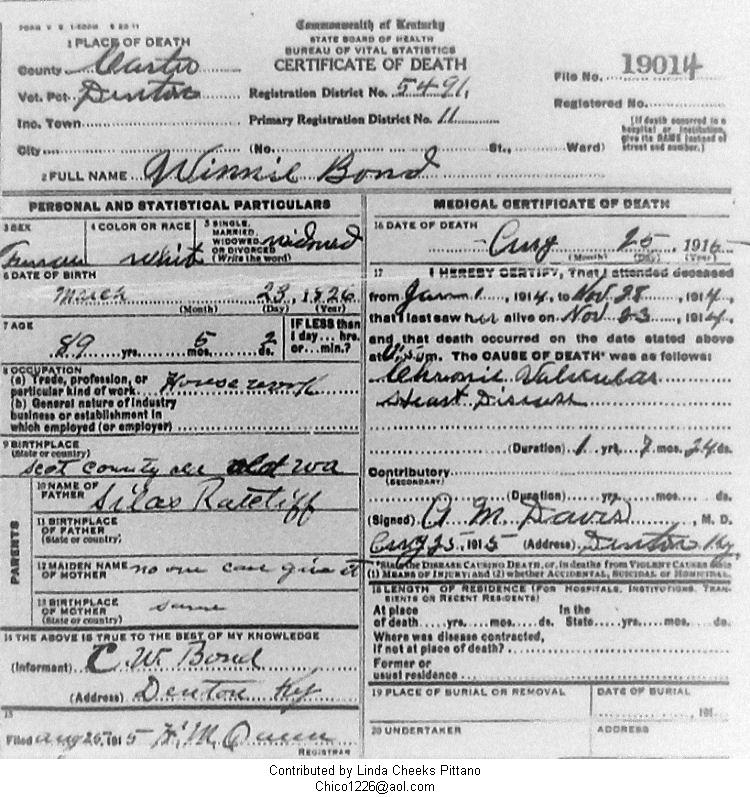 FORM V. S. 1-500M 8 20 11
Commonwealth of Kentucky
STATE BOARD OF HEALTH
BUREAU OF VITAL STATISTICS
CERTIFICATE OF DEATH
1 PLACE OF DEATH
County Carter
Vot. Pct. Denton
Inc. Town
City
Registration District No. 5491
Primary Registration District No. 11
(No. St., Ward)
File No. 19014
Registered No.
[If death occurred in a hospital or institution, give its NAME instead of street and number.]
2 FULL NAME Winnie Bond
PERSONAL AND STATISTICAL PARTICULARS
3 SEX
4 COLOR OR RACE White
5 SINGLE, MARRIED, WIDOWED OR DIVORCED (Write the word) widowed
6 DATE OF BIRTH
March 23, 1826
(Month) (Day) (Year)
7 AGE
89 yrs. 5 mos. 2 ds.
IF LESS than 1 day... hrs. or... min.?
8 OCCUPATION
(a) Trade, profession, or particular kind of work Housework
(b) General nature of industry business or establishment in which employed (or employer)
9 BIRTHPLACE
(State or country)
Scot county old va
PARENTS
10 NAME OF FATHER Silas Ratcliff
11 BIRTHPLACE OF FATHER (State or country)
12 MAIDEN NAME OF MOTHER no one can give it
13 BIRTHPLACE OF MOTHER (State or country) same
14 THE ABOVE IS TRUE TO THE BEST OF MY KNOWLEDGE
(Informant) C. W. Bond
(Address) Denton Ky
15
Filed Aug 25, 1915 F. M.
REGISTRAR
MEDICAL CERTIFICATE OF DEATH
16 DATE OF DEATH
Aug 25, 1915
(Month) (Day) (Year)
17 I HEREBY CERTIFY, That I attended deceased
from Jan 1, 1914, to Nov 28, 1914,
that I last saw her alive on Nov 23, 1914,
and that death occurred on the date stated above
at m. The CAUSE OF DEATH* was as follows:
Chronic Valvular
Heart Disease
(Duration) 1 yrs. 7 mos. 24 ds.
Contributory
(SECONDARY)
(Duration) yrs. mos. ds.
(Signed) A. M. Davis, M. D.
Aug 25, 1915 (Address) Denton Ky.
*State the DISEASE CAUSING DEATH, or, in deaths from VIOLENT CAUSES state
(1) MEANS OF INJURY; and (2) whether ACCIDENTAL, SUICIDAL or HOMICIDAL.
18 LENGTH OF RESIDENCE (FOR HOSPITALS, INSTITUTIONS, TRANSIENTS OR RECENT RESIDENTS)
At place of death yrs. mos. ds.
In the State yrs. mos. ds.
Where was disease contracted, if not at place of death?
Former or usual residence
19 PLACE OF BURIAL OR REMOVAL
DATE OF BURIAL
191
20 UNDERTAKER
ADDRESS
Contributed by Linda Cheeks Pittano
Chico1226@aol.com